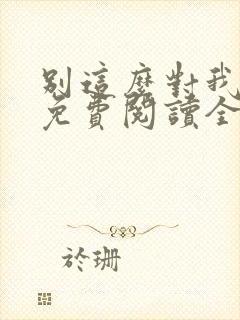 別這麼對我
免費閱讀全
於珊